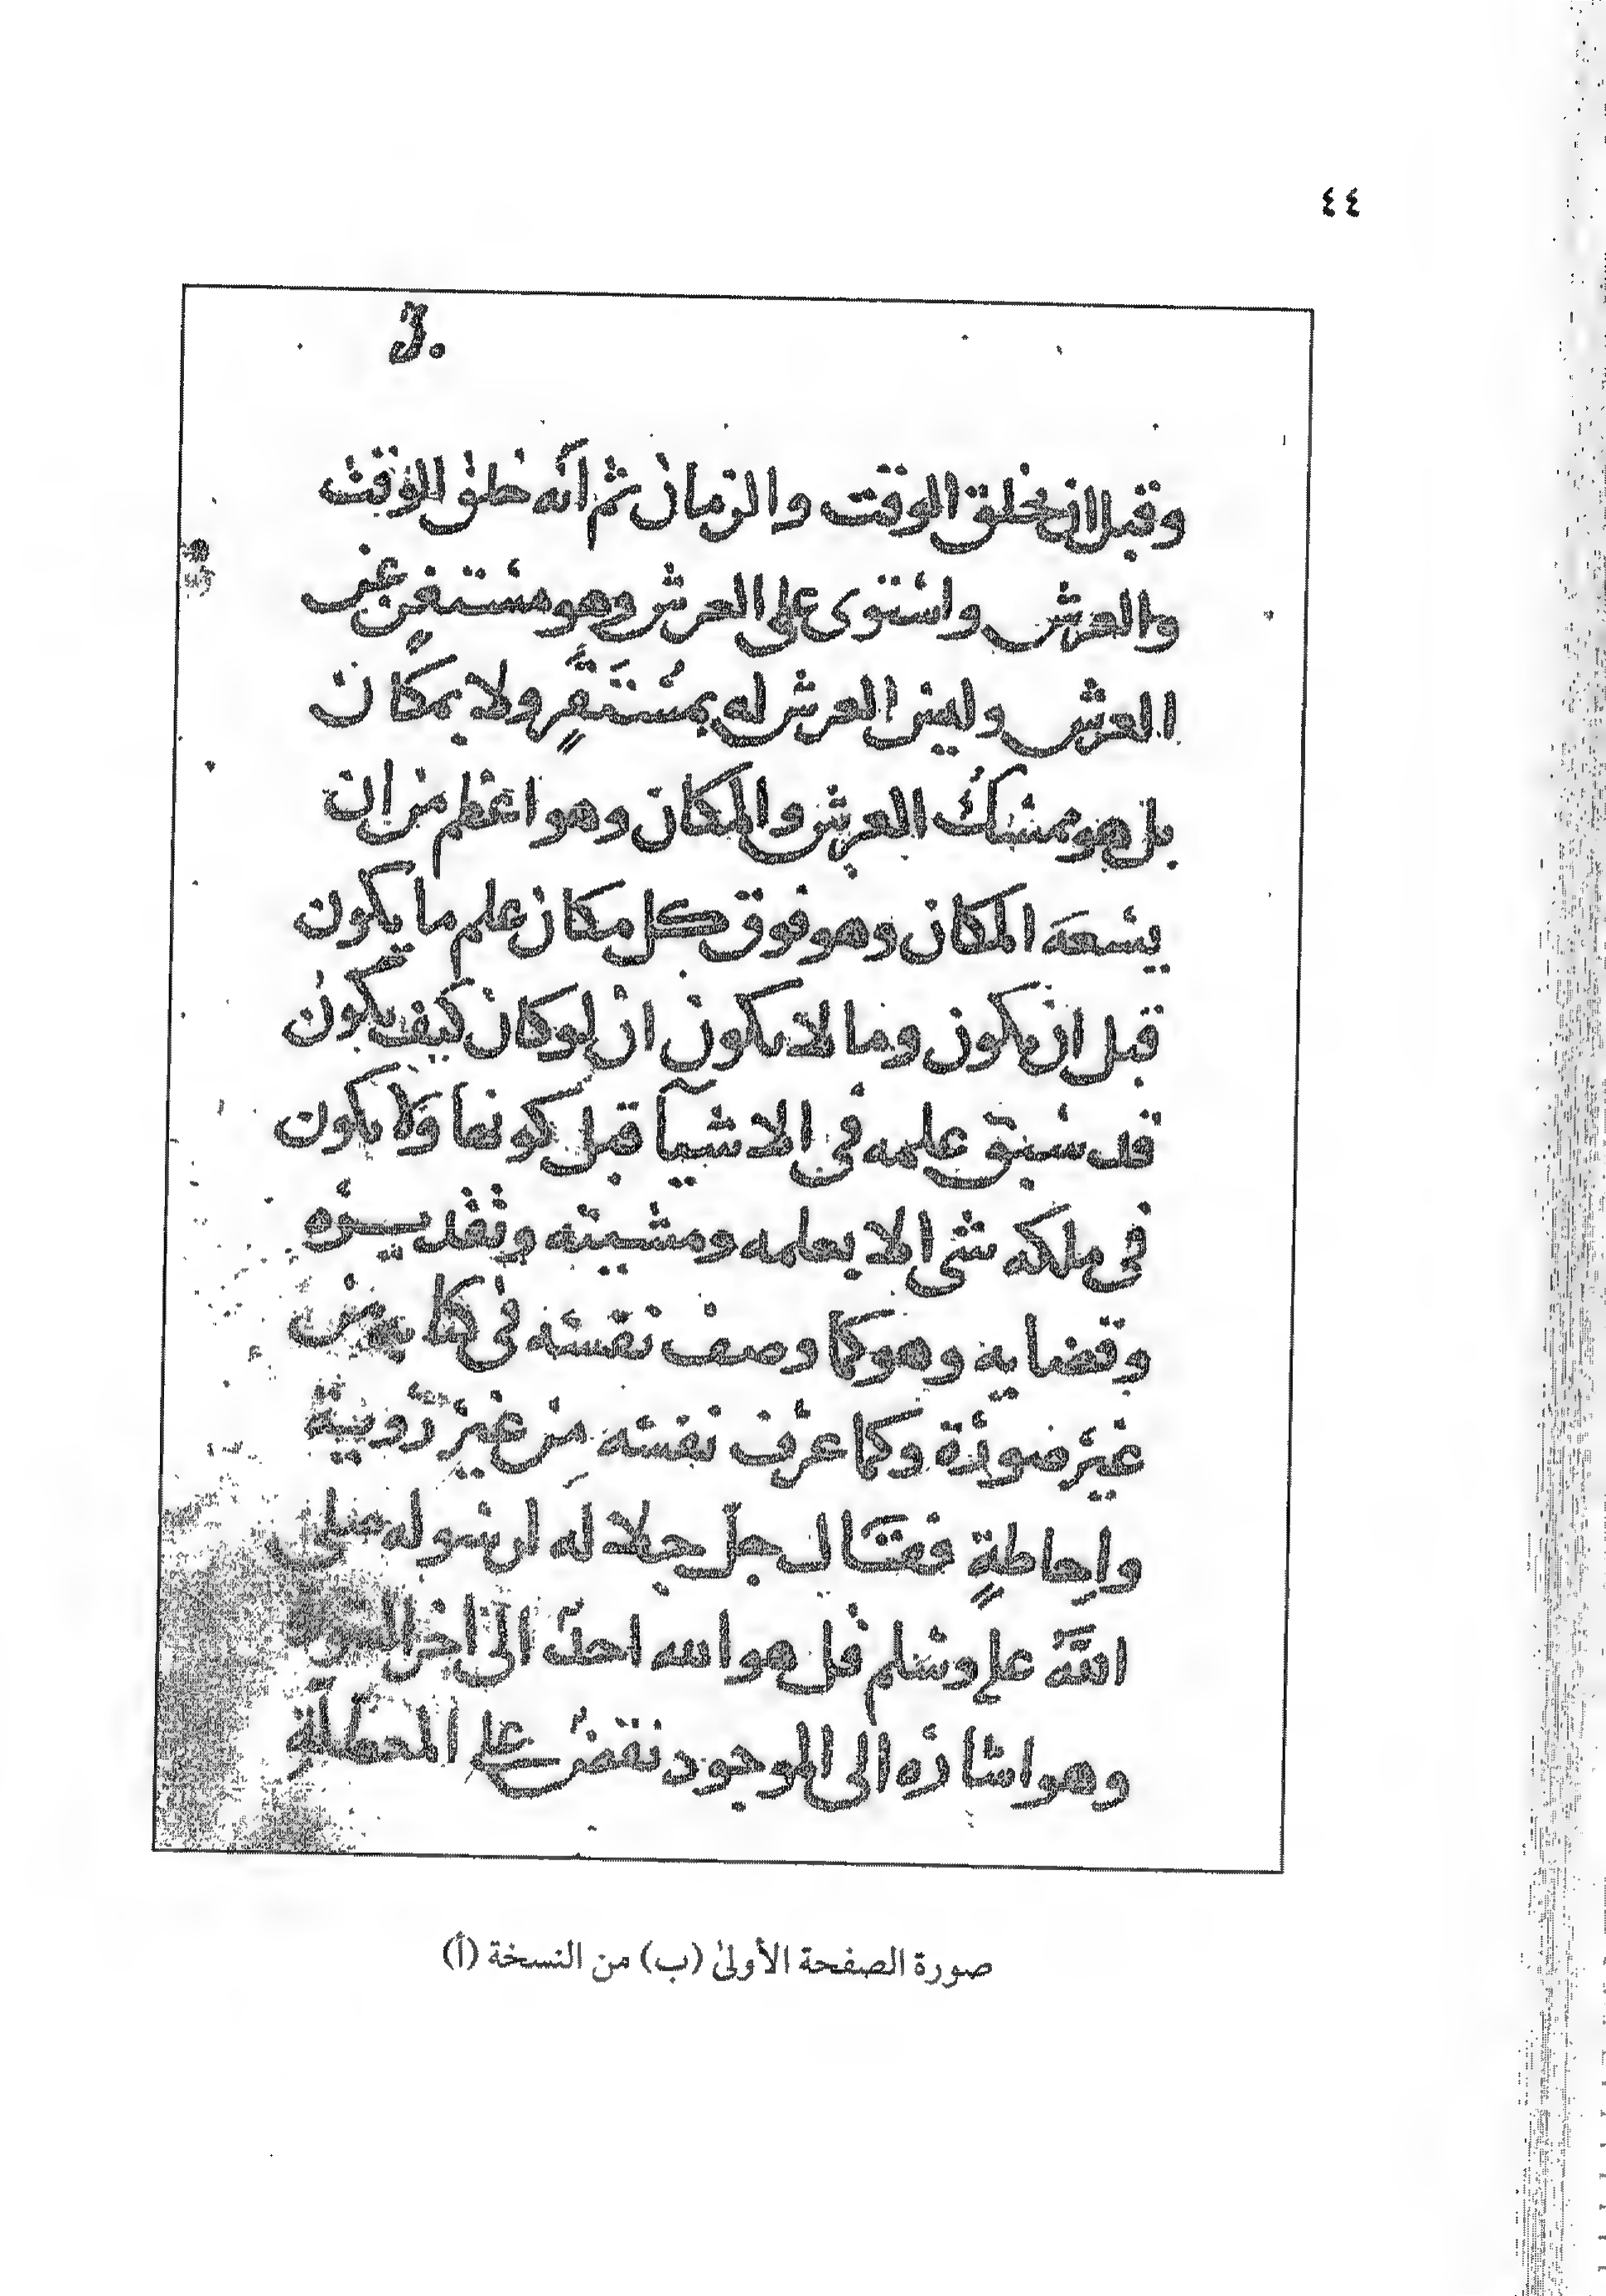 ٤٤
3.
وقبل ان يخلق الوقت والزمان ثم انه خلق الوقت
والعرش واستوى على العرش وهو مستغن عن
العرش وليس العرش له بمُسْتَقَرٍّ ولا بمكان
بل هو ممسك العرش والمكان وهو اعظم من ان
يسعه المكان وهو فوق كل مكان علم ما يكون
قبل ان يكون وما لا يكون ان لو كان كيف يكون
قد سبق علمه في الاشيآ قبل كونها ولا يكون
في ملكه شي الا بعلمه ومشيته وتقديره
وقضايه وهو كما وصف نفسه في كتابه من
غير صورة وكما عرف نفسه مِن غير رويية
واحاطةٍ فقال جلّ جلاله لرسوله صلى
اللَّه علي وسلم قل هو الله احدٌ الى اخر السورة
وهو اشاره الى الموجود نقض على المعطلة
صورة الصفحة الأولىٰ (ب) من النسخة (أ)